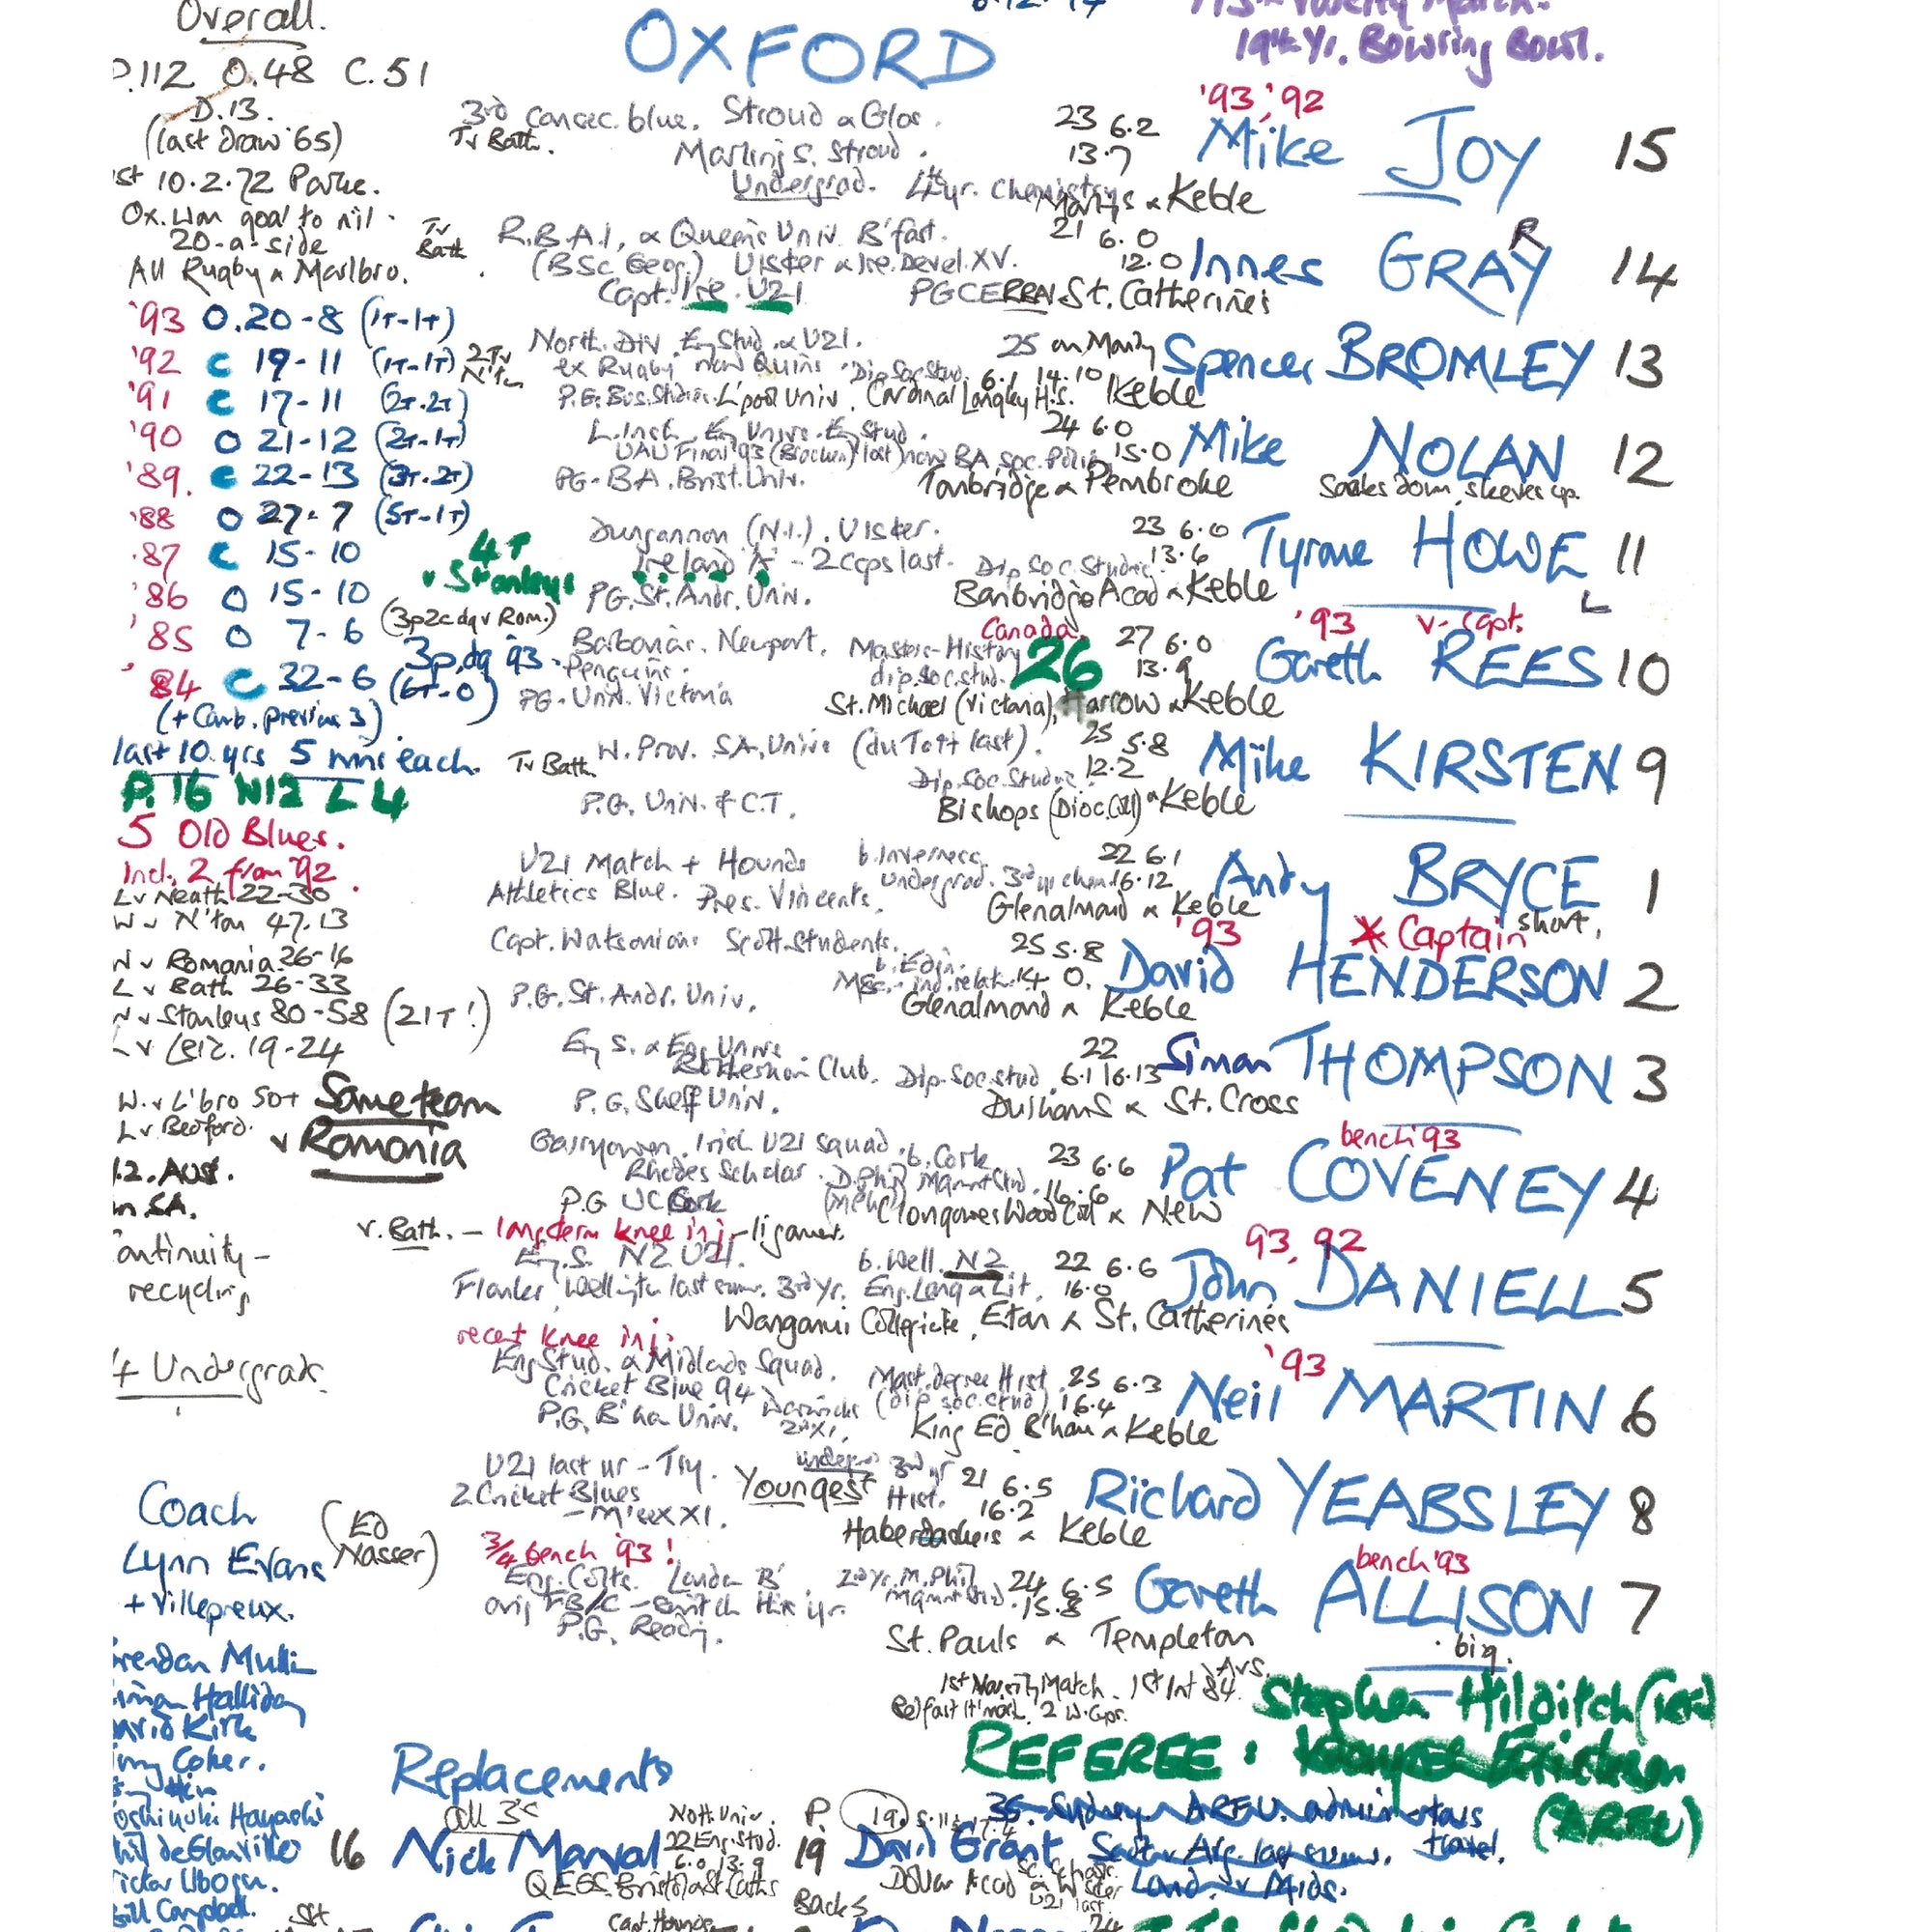 Overall.
P.112 O.48 C.51
D.13.
(last draw '65)
1st 10.2.72 Parks.
Ox. won goal to nil.
20-a-side
All Rugby & Marlbro.
'93 O. 20-8 (1T-1T)
'92 C 19-11 (1T-1T)
'91 C 17-11 (2T.2T)
'90 O 21-12 (2T-1T)
'89. C 22-13 (3T.2T)
'88 O 27-7 (5T-1T)
'87 C 15-10
'86 O 15-10
'85 O 7-6
'84 C 32-6 (6T-0)
(+ Camb. previous 3)
last 10 yrs 5 wins each.
P. 16 W12 L 4
5 Old Blues.
Incl. 2 from '92.
L v Neath 22-30
W v N'ton 47.13
W v Romania 26-16
L v Bath 26-33
W v Stanleys 80-58 (21T!)
L v Leic. 19-24
W. v L'bro 50+
L v Bedford.
Same team
v Romania
in SA.
continuity -
recycling
4 Undergrads.
Coach
Lynn Evans
(Ed Nasser)
+ Villepreux.
Brendan Mullin
Simon Halliday
David Kirk
Troy Coker.
Yoshiyuki Hayashi
Phil de Glanville
Victor Ubogu.
Bill Campbell.
OXFORD
Varsity Match.
19th Yr. Bowring Bowl.
'93, '92
3rd consec. blue. Stroud & Glos.
23 6.2
Mike JOY 15
Tv Bath.
Marling S. Stroud.
13.7
Undergrad. 4th yr. Chemistry
& Keble
R.B.A.I. & Queen's Univ. B'fast.
21 6.0
Tv Bath
(BSc. Geog.) Ulster & Ire. Devel. XV.
12.0
Innes GRAY 14
R
Capt. Ire. U21
PGCE
RBAI & St. Catherine's
North. Div. Eng Stud. & U21.
25 on Monday
Spencer BROMLEY 13
2Tv N'ton
ex Rugby now Quins. Dip Soc. Stud. 6.1 14.10
P.G. Bus. Studies. L'pool Univ. Cardinal Langley H.S. Keble
L. Irish. Eng Univs. Eng Stud.
24 6.0
UAU Final '93 (Bracken) last) now BA Soc. Polic.
15.0
Mike NOLAN 12
PG-BA. Brist. Univ.
Tonbridge & Pembroke
Socks down, sleeves up.
Dungannon (N.I.). Ulster.
23 6.0
Tyrone HOWE 11
4T v Stanleys
Ireland 'A' - 2 caps last.
Dip Soc. Studies.
13.6
PG. St. Andr. Univ.
Banbridge Acad & Keble
L
(3p2cdg v Rom.)
'93 v-Capt.
Canada.
Barbarian. Newport. Masters-History
26
27 6.0
Gareth REES 10
3p,dg '93.
Penguins.
dip. soc. stud.
13.9
PG. Univ. Victoria
St. Michael (Victoria), Harrow & Keble
W. Prov. S.A. Univs (du Toit last).
25 5.8
Mike KIRSTEN 9
Tv Bath
Dip. Soc. Studies.
12.2
P.G. Univ. of C.T.
Bishops (Dioc. Coll) & Keble
U21 Match + Hounds
b. Inverness.
22 6.1
Andy BRYCE 1
Athletics Blue. Pres. Vincents.
undergrad. 3rd yr chem. 16.12
Glenalmond & Keble
'93 * Captain
short.
Capt. Watsonians Scott. Students.
25 5.8
b. Edin.
David HENDERSON 2
P.G. St. Andr. Univ.
MSc.-ind. relat. 14 0.
Glenalmond & Keble
Eng S. & Eng. Univs.
22
Simon THOMPSON 3
Rotherham Club. Dip. Soc. Stud. 6.1 16.13
P.G. Sheff Univ.
Dulham S & St. Cross
bench '93
Garryowen. Irish U21 Squad. b. Cork
23 6.6
Pat COVENEY 4
Rhodes Scholar. D.Phil Mgmnt Stud.
16.6
P.G UC Cork
Clongowes Wood Coll & New
v. Bath. - long term knee inj - ligament.
93, 92
Eng. S. NZ U21.
b. Well. NZ
22 6.6
John DANIELL 5
Flanker Wellington last summ. 3rd Yr. Eng. Lang & Lit.
16.0
Wanganui Collegiate, Eton & St. Catherine's
recent knee inj.
'93
Eng Stud. & Midlands Squad.
Mast. degree Hist.
25 6.3
Neil MARTIN 6
Cricket Blue 94
Warwicks 2nd XI.
(dip soc. stud)
16.4
P.G. B'ham Univ.
King Ed B'ham & Keble
U21 last yr - Try.
Youngest
undergrad 3rd yr Hist.
21 6.5
Richard YEABSLEY 8
2 Cricket Blues
- M'sex XI.
16.2
Haberdashers & Keble
3/4 bench '93!
bench '93
Eng. Colts. London 'B'.
2nd Yr. M.Phil
24 6.5
Gareth ALLISON 7
orig FB/C - switch this yr.
Mgmnt Stud.
15.8
P.G. Reading.
St. Pauls & Templeton
big.
1st Varsity Match. 1st Int 84.
Belfast
Stephen Hilditch (Ire)
REFEREE:
(ARFU)
Replacements
all 3s
16 Nick Marval
Nott. Univ.
22 Eng. Stud.
6.0 13.9
QEGS. Bristol & St Caths
P.
19 David Grant
19.
Dollar Acad
Backs